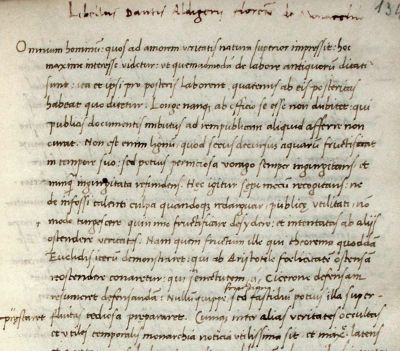 Libellus Dantis Aligeri florēt de Monarchia
134
Omnium hominū: quos ad amorem veritatis natura superior impressit: hoc
maxime interesse videtur: ut quemadmodū de labore antiquorū ditati
sunt: ita et ipsi pro posteris laborent, quatenus ab eis posteritas
habeat quo ditetur. Longe nanq; ab officio se esse non dubitet: qui
publicis documentis imbutus ad rempublicam aliquid afferri non
curat. Non est enim lignū: quod secus decursus aquarū fructificat
in tempore suo: sed potius perniciosa vorago semper ingurgitans et
nunq̄ ingurgitata refundens. Hec igitur sepi mecū recogitans: ne
de infossi talenti culpa quandoque redarguar: publicę utilitati nō
modo turgescere quin imo fructificare desydero: et intentatas ab aliis
ostendere veritates. Nam quem fructum ille qui theoremo quoddā
Euclidis iterū demonstraret: qui ab Aristotile foelicitatē ostensā
reostendere conaretur: qui senectutem a Cicerone defensam
resumeret defensandā: Nullū quippe: sed fastidiū potius illa super-
prestaret fluitas tediosa prepararet. Cumq; inter alias veritates occultas
et utiles temporalis monarchia noticia utilissima sit: et maxᵉ latens